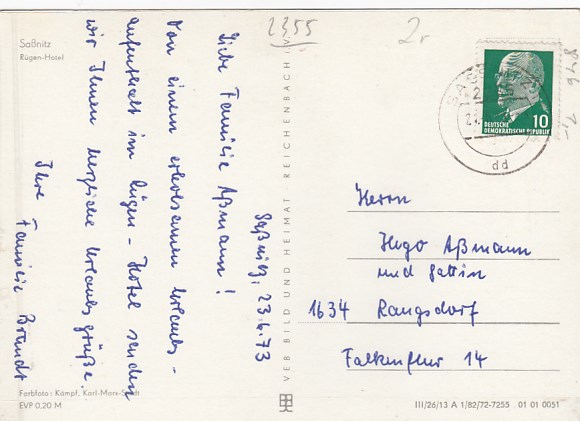 Saßnitz
Rügen-Hotel
2355
2r
Saßnitz, 23.6.73
Liebe Familie Aßmann!
Von einem erholsamen Urlaubs-
aufenthalt im Rügen-Hotel senden
wir Ihnen herzliche Urlaubsgrüße.
Ihre Familie Brandt
Farbfoto: Kämpf, Karl-Marx-Stadt
EVP 0,20 M
VEB BILD UND HEIMAT REICHENBACH
DEUTSCHE
DEMOKRATISCHE REPUBLIK
10
dd
Herrn
Hugo Aßmann
und Gattin
1634 Rangsdorf
Falkenflur 14
III/26/13 A 1/82/72-7255 01 01 0051